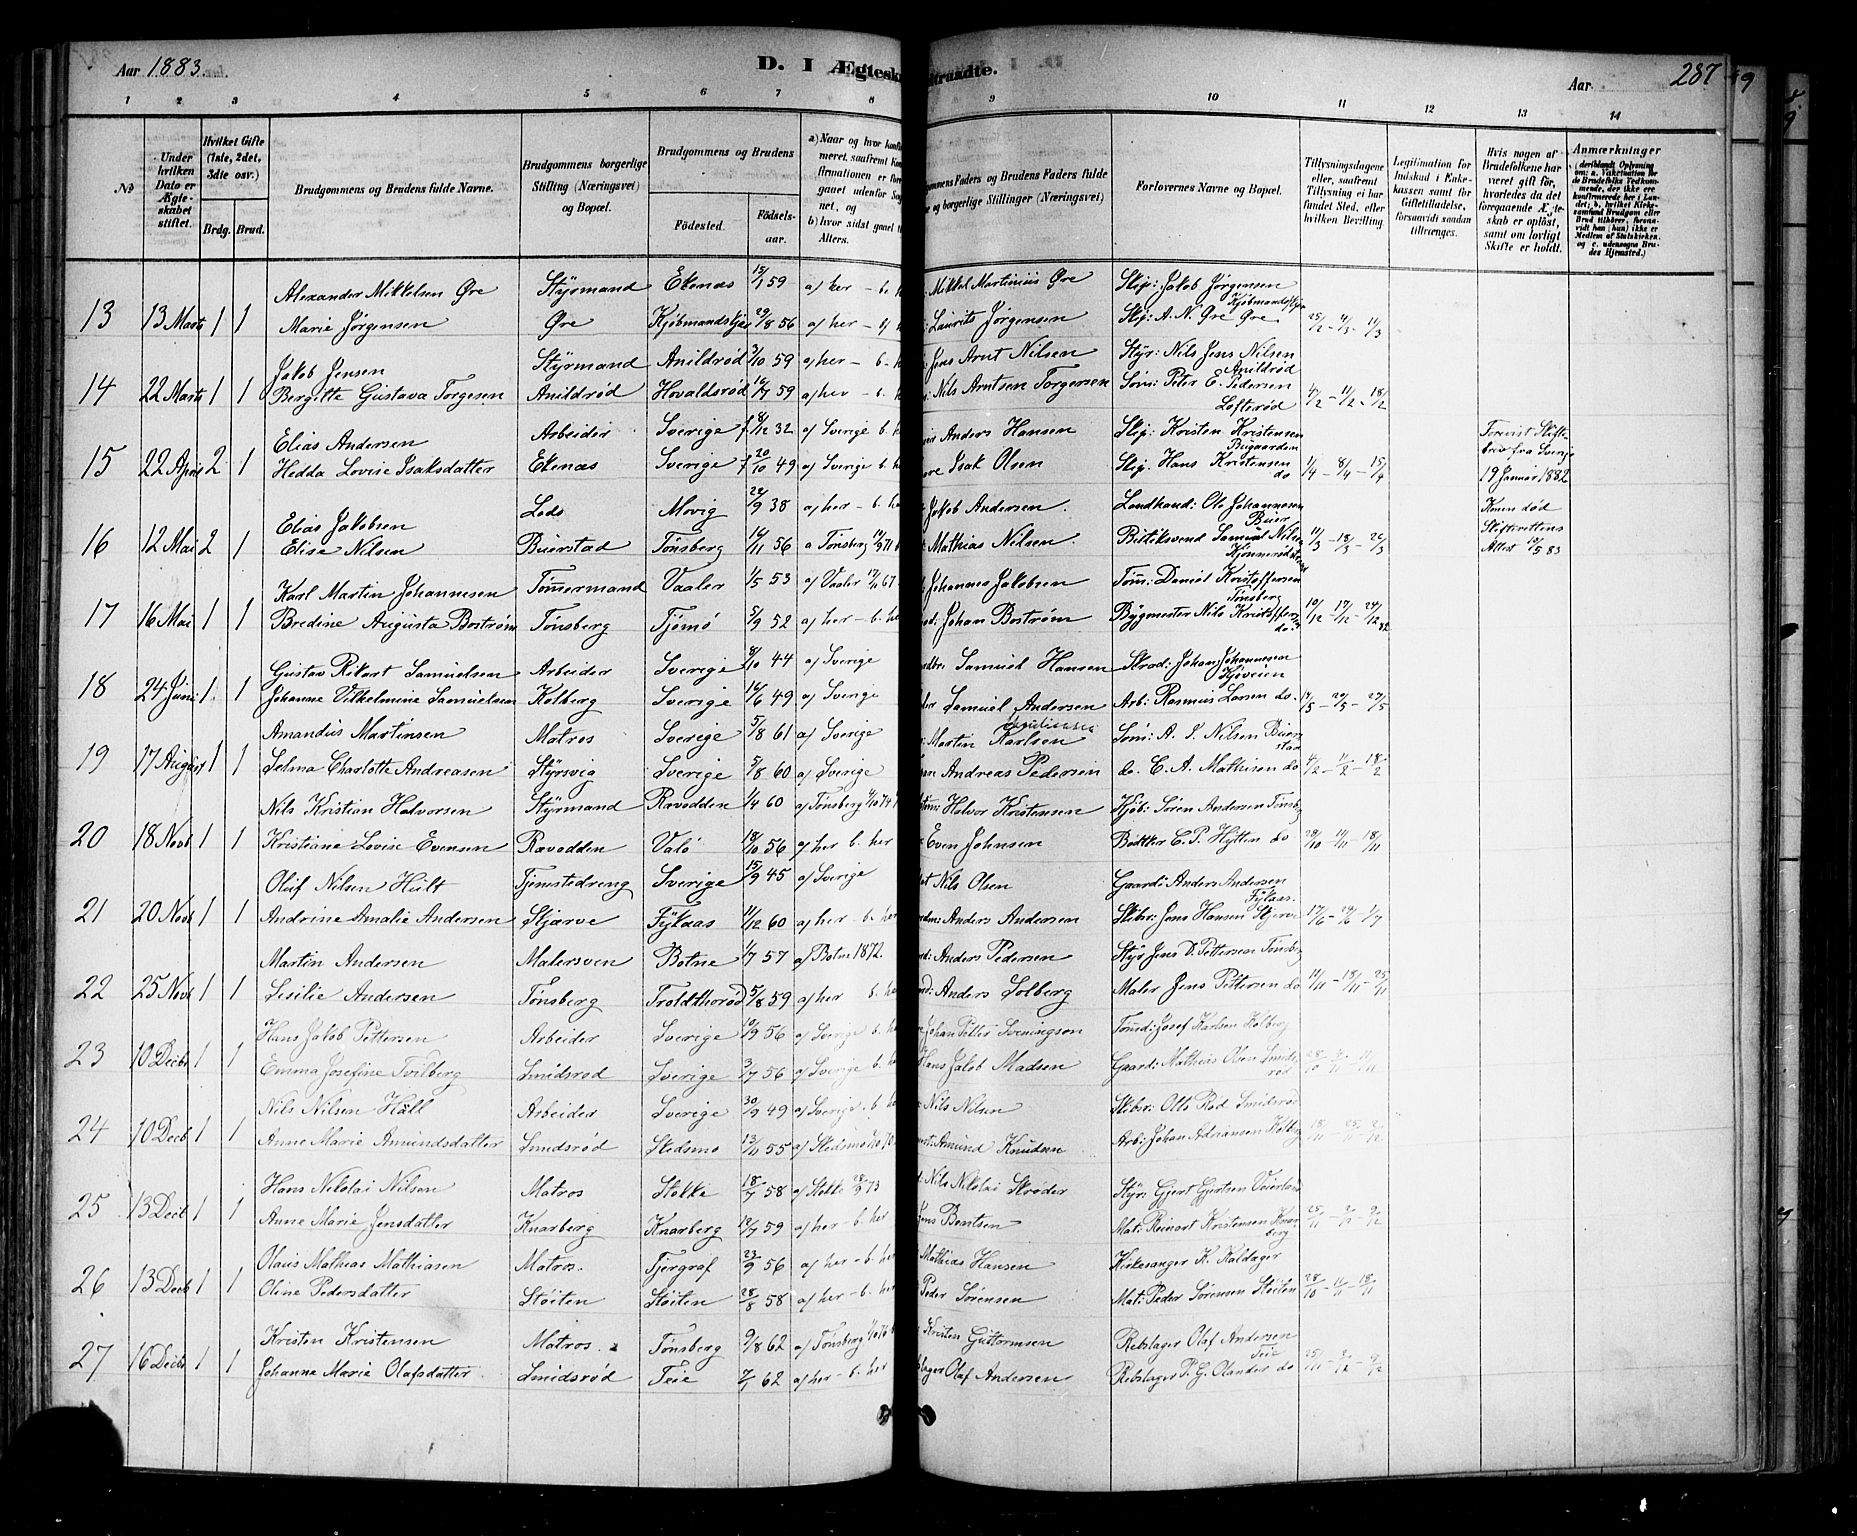 Aar 1883. D. I Ægtesk itraadte. Aar 287
1 2 3 4 5 6 7 8 9 10 11 12 13 14
No
Under hvilken Dato er Ægteskabet stiftet.
Hvilket Gifte (1ste, 2det, 3die osv.)
Brdg. Brud.
Brudgommens og Brudens fulde Navne.
Brudgommens borgerlige Stilling (Næringsvei) og Bopæl.
Brudgommens og Brudens
Fødested. Fødselsaar.
a) Naar og hvor konfi
meret, saafremt Kon
firmationen er fore
gaaet udenfor Sog
net, og
b) hvor sidst gaaet t
Alters.
ommens Faders og Brudens Faders fulde
e og borgerlige Stillinger (Næringsvei)
Forlovernes Navne og Bopæl.
Tillysningsdagene eller, saafremt Tillysning ei har fundet Sted, efter hvilken Bevilling
Legitimation for Indskud i Enkekassen samt for Giftetilladelse, forsaavidt saadan tiltrænges.
Hvis nogen af Brudefolkene har været gift før, hvorledes da det foregaaende Ægteskab er opløst, samt om lovligt Skifte er holdt.
Anmærkninger
(deriblandt Oplysning om: a. Vaksination for de Brudefolks Vedkommende, der ikke ere konfirmerede her i Landet; b. hvilket Kirkesamfund Brudgom eller Brud tilhører, forsaavidt han (hun) ikke er Medlem af Statskirken, og c. udensogns Brudes Hjemsted.)
Alexander Mikkelsen Øre Styrmand Ekenæs 15/1 59 a/ her - b. h Mikkel Martinius Øre Skip: Jakob Jørgensen Kjøbmandskjær
13 13 Marts 1 1 Marie Jørgensen Øre Kjøbmandskjær 29/8 56 a/ her - b/ h Laurits Jørgensen Skp: A. N. Øre Øre 25/2 - 4/3 - 11/3
Jakob Jensen Styrmand Anildrød 3/10 59 a/ her - b. h Jens Arnt Nilsen Styr: Nils Jens Nilsen Anildrød
14 22 Marts 1 1 Bergitte Gustava Torgesen Anildrød Hovaldsrød 16/7 59 a/ her - b. h Nils Arntsen Torgersen Søm: Peter E. Pedersen Lofterød 4/2 - 11/2 - 18/2
Elias Andersen Arbeider Sverige f 8/12 32 a/ Sverige b. h Anders Hansen Skip: Kristen Kristensen Forevist Skiftebrev fra Sverige
15 22 April 2 1 Hedda Lovise Isaksdatter Ekenæs Sverige f 20/10 49 a/ Sverige b. h Isak Olsen Skip. Hans Kristensen do 1/4 - 8/4 - 15/4 19 Januar 1882
Elias Jakobsen Lods Movig 22/9 38 a/ her - b. h Jakob Andersen. Landhand: Ole Johannesen Buer Konen død
16 12 Mai 2 1 Elise Nilsen Buerstad Tønsberg 16/11 56 a Tønsberg 71 Mathias Nilsen Samuel Nilsen 11/3 - 18/3 - 26/3 Skifterettens Attest 10/5 83
Karl Martin Johannesen Tømmermand Vaaler 1/5 53 a/ Vaaler 67 Johannes Jakobsen Tøm: Daniel Kristoffersen Tønsberg
17 16 Mai 1 1 Bredine Augusta Bostrøm Tønsberg Tjømø 5/9 52 a/ her - b. he Johan Bostrøm Bygmester Nils Kristoffersen do. 10/12 - 17/12 - 24/12 82
Gustav Rikart Samuelsen Arbeider Sverige 8/10 44 a/ Sverige Samuel Hansen Skrad: Johan Johannesen
18 24 Juni 1. 1 Johanne Vilhelmine Samuelsen Kolberg Sverige 16/6 49 a/ Sverige der Samuel Andersen Arb: Rasmus Larsen do. 14/5 - 20/5 - 27/5
Amandus Martinsen Matros Sverige 5/8 61 a/ Sverige Martin Karlsen Søm: A. S. Nilsen Buerstad
19 17 August 1 1 Selma Charlotte Andreasen Styrsvig Sverige 5/8 60 a/ Sverige Andreas Pedersen do. C. A. Mathisen do 4/2 - 11/2 - 18/2
Nils Kristian Halvorsen Styrmand Ravodden 1/4 60 a/ Tønsberg 1/10 74 Halvor Kristensen Kjøb: Søren Andersen Tønsbg
20 18 Novb 1 1 Kristiane Lovise Evensen Ravodden Valø 18/10 56 a/ her b. her Even Johnsen Bødtker C. P. Hytten do 28/10 - 11/11 - 18/11
Oluf Nilsen Hult Tjenstedreng Sverige 15/9 45 a/ Sverige Nils Olsen Gaard: Anders Andersen Fylaas.
21 20 Novb 1 1 Andrine Amalie Andersen Skjærve Fylaas 11/12 60 a/ her - b. her Anders Andersen Skibr: Jens Hansen Skjerve 17/6 - 24/6 - 1/7
Martin Andersen Malersven Botne 1/7 57 a/ Botne 1872. Anders Pedersen Styr Jens D. Pettersen Tønsbg
22 25 Novb 1 1 Lesilie Andersen Tønsberg Troldthorød 5/8 59 a/ her b. her Anders Solberg Maler Jens Pettersen do 11/11 - 18/11 - 25/11
Hans Jakob Pettersen Arbeider Sverige 10/9 56 a/ Sverige b. he Johan Petter Sveningsen Tømd: Josef Karlsen Kolberg
23 10 Decbr 1 1 Emma Josefine Tvilberg Smidsrød Sverige 3/7 56 a/ Sverige b. he Hans Jakob Madsen Gaard: Mathias Olsen Smidsrød 28/10 - 4/11 - 11/11
Nils Nilsen Häll Arbeider Sverige 30/9 49 a/ Sverige. b. h Nils Nilsen Skibsr: Otto Rød Smidsrød
24 10 Decb 1 1 Anne Marie Amundsdatter Smidsrød Skedsmo 13/11 55 a/ Skedsmo 70 Amund Knudsen Arb: Johan Adriansen Kolberg 18/11 - 25/11 - 2/12
Hans Nikolai Nilsen Matros Stokke 18/7 58 a/ Stokke 28/9 73 Nils Nikolai Skrøder Styr: Gjert Gjertsen Veierland
25 13 Decb 1 1 Anne Marie Jensdatter Knarberg Knarberg 19/7 59 a/ her - b. her Jens Bentsen Mat: Reinart Kristensen Knarberg 25/11 - 2/12 - 9/12
Olaus Mathias Mathiasen Matros. Fjergraf 23/9 56 a/ her - b. he Mathias Hansen Kirkesanger K. Kaldager
26 13 Decb 1 1 Oline Pedersdatter Støiten Støiten 28/8 58 a/ her - b. her Peder Sørensen Mat: Peder Sørensen Støiten 28/10 - 11/11 - 18/11
Kristen Kristensen Matros. Tønsberg 9/8 62 a/ Tønsberg 1/10 76 Kristen Guttormsen Rebslager Olaf Andersen Teie
27 16 Decbr 1 1 Johanne Marie Olafsdatter Smidsrød Teie 2/1 62 a/ her - b. her lager Olaf Andersen Rebslager P. G. Olander do 25/11 - 2/12 - 9/12